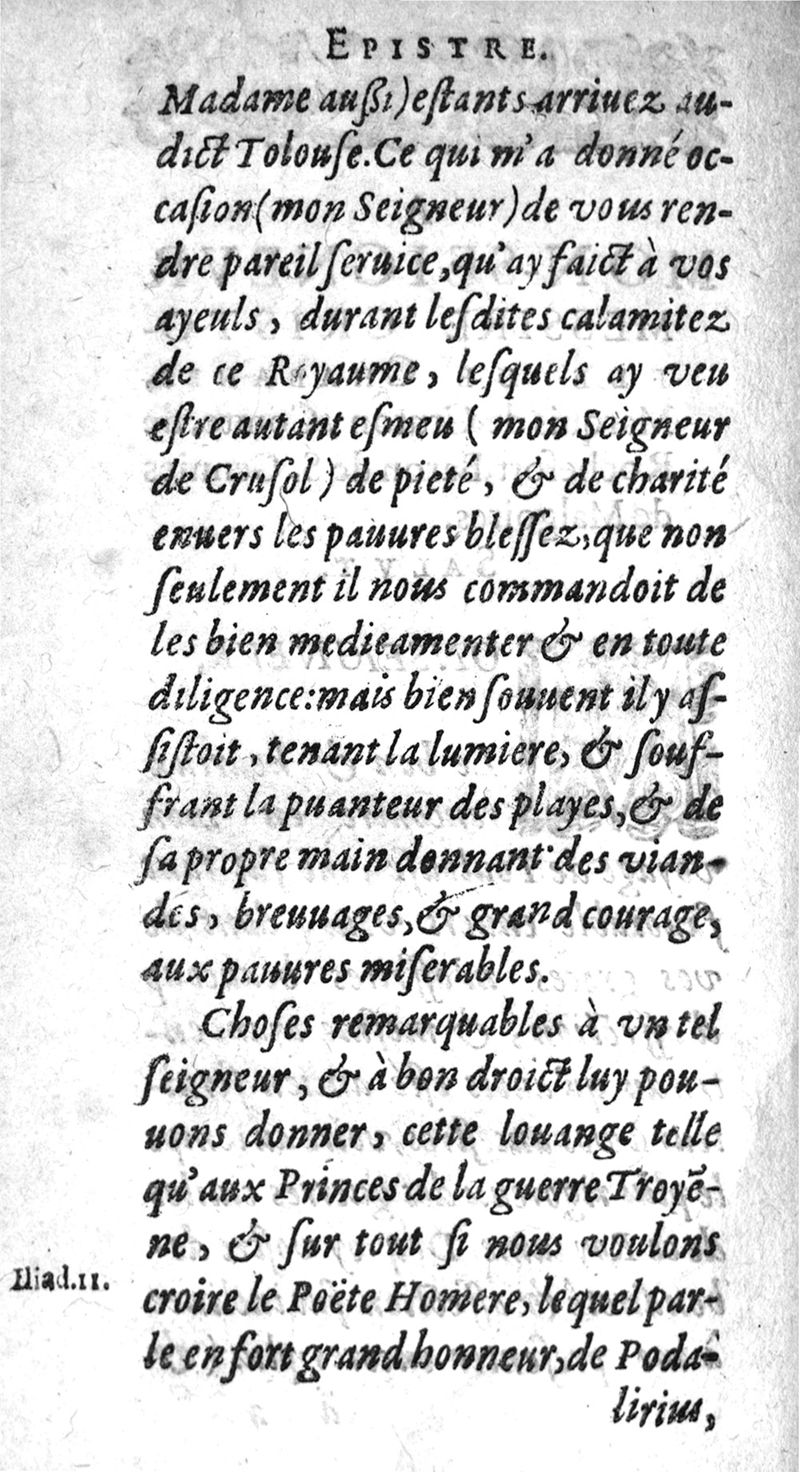 EPISTRE.
Madame außi) eſtants arriuez au-
dict Tolouſe. Ce qui m'a donné oc-
caſion (mon Seigneur) de vous ren-
dre pareil ſeruice, qu'ay faict à vos
ayeuls, durant leſdites calamitez
de ce Royaume, leſquels ay veu
eſtre autant eſmeu (mon Seigneur
de Cruſol) de pieté, & de charité
enuers les pauures bleſſez, que non
ſeulement il nous commandoit de
les bien medicamenter & en toute
diligence: mais bien ſouuent il y aſ-
ſiſtoit, tenant la lumiere, & ſouf-
frant la puanteur des playes, & de
ſa propre main donnant des vian-
des, breuuages, & grand courage,
aux pauures miſerables.
Choſes remarquables à vn tel
ſeigneur, & à bon droict luy pou-
uons donner, cette louange telle
qu'aux Princes de la guerre Troyẽ-
ne, & ſur tout ſi nous voulons
Iliad. 11.
croire le Poëte Homere, lequel par-
le en fort grand honneur, de Poda-
lirius,